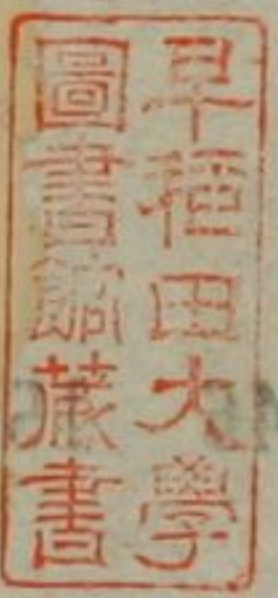 早稲田大學
圖書館藏書